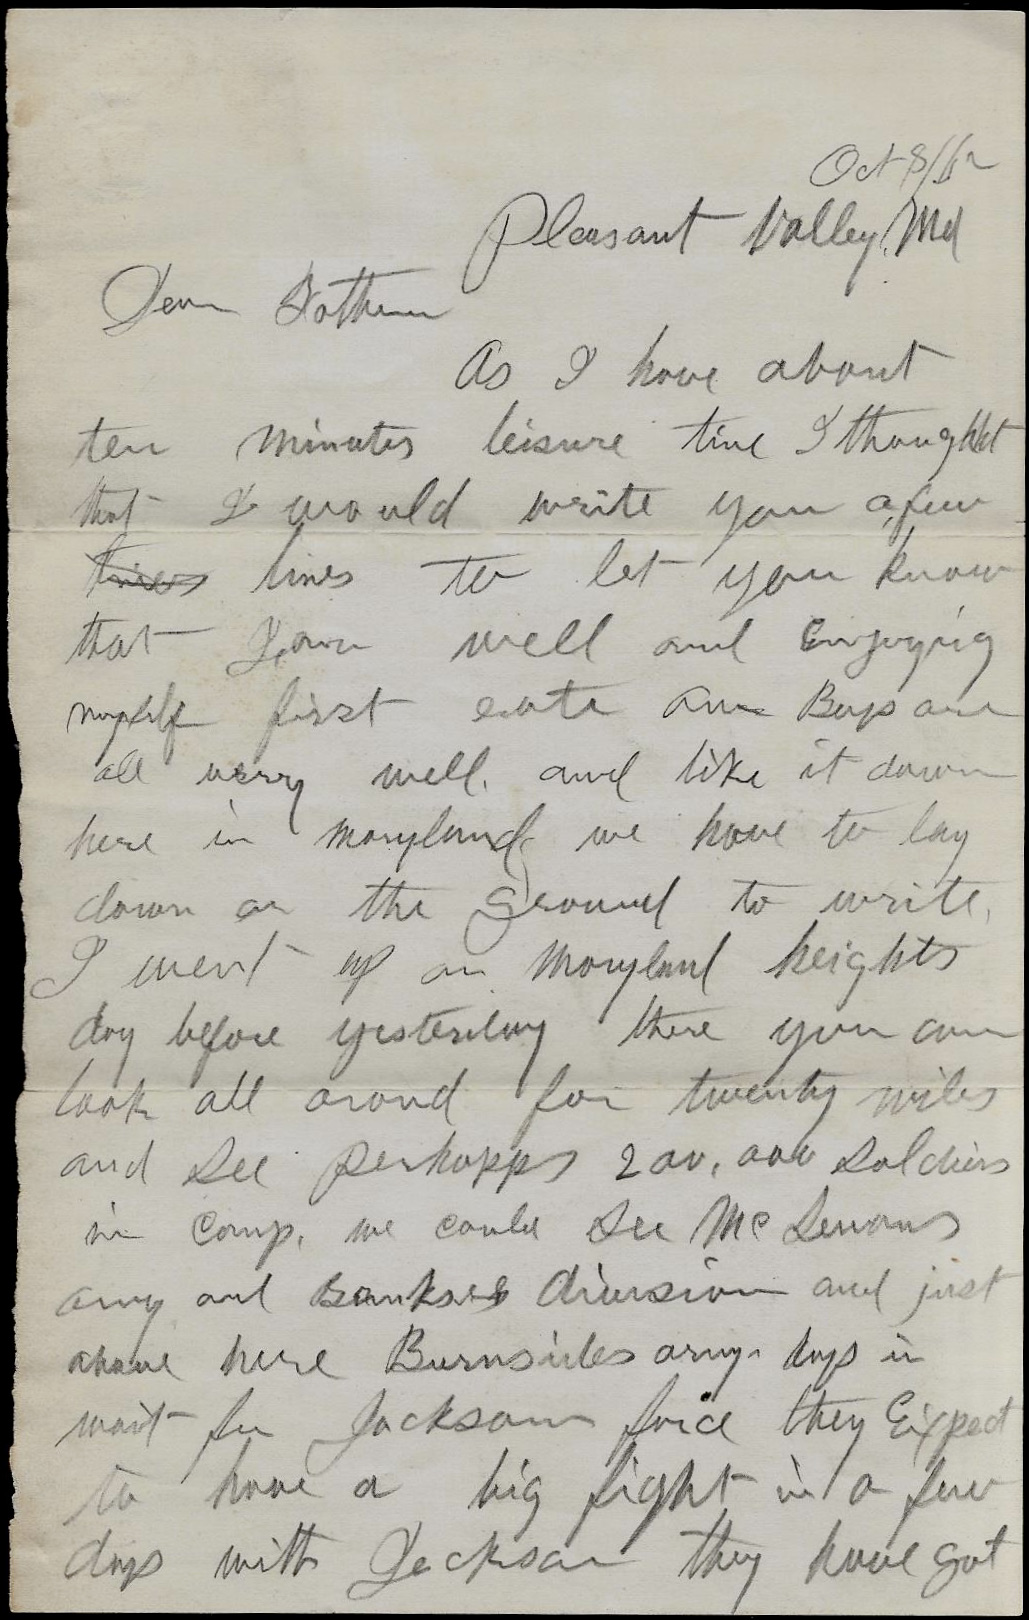 Oct 8/62
Pleasant Valley, Md
Dear Father
As I have about
ten minutes leisure time I thought
that I would write you a few
lines to let you know
that I am well and Enjoying
myself first rate our Boys are
all very well. and like it down
here in Maryland. we have to lay
down on the ground to write.
I went up on Maryland heights
day before yesterday there you can
look all arond for twenty miles
and see perhapps 200,000 soldiers
in camp. we could see Mc
army and Bankses division and just
above here Burnsides army. lays in
wait for Jackson force they Expect
to have a big fight in a few
days with Jackson they have got